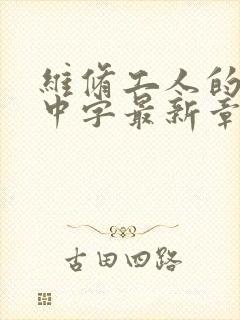 維脩工人的
中字最新章
古田四路